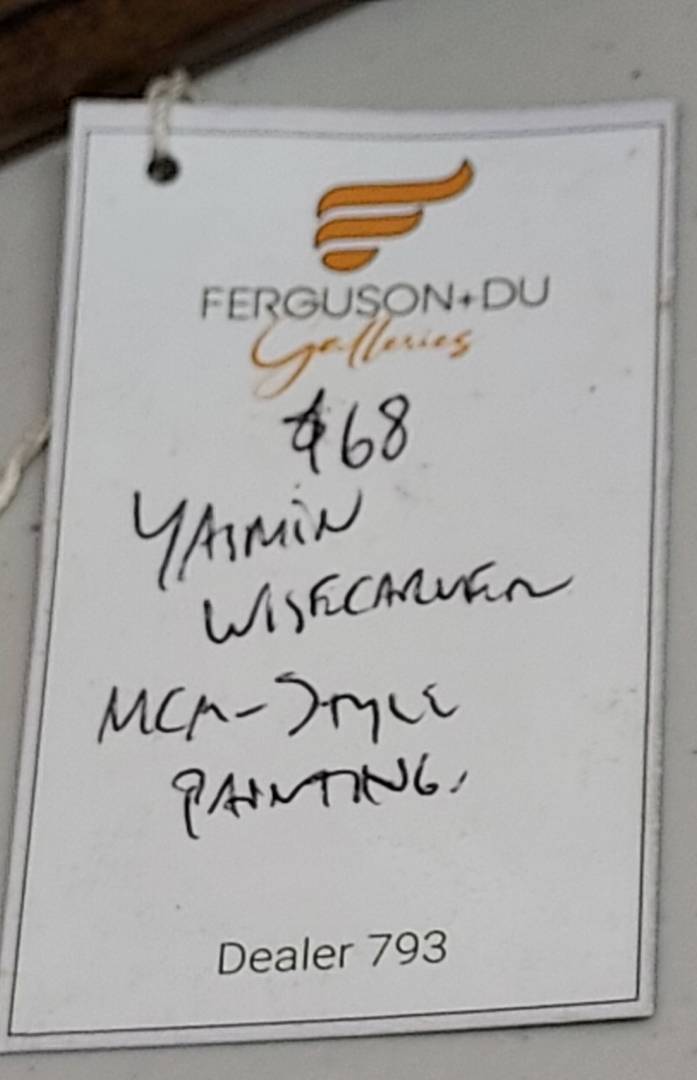 FERGUSON+DU
Galleries
$68
YASMIN
WISECARVER
MCM-STYLE
PAINTING.
Dealer 793